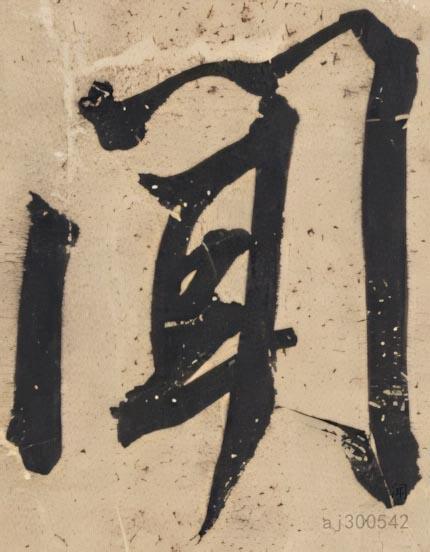 闻
aj300542